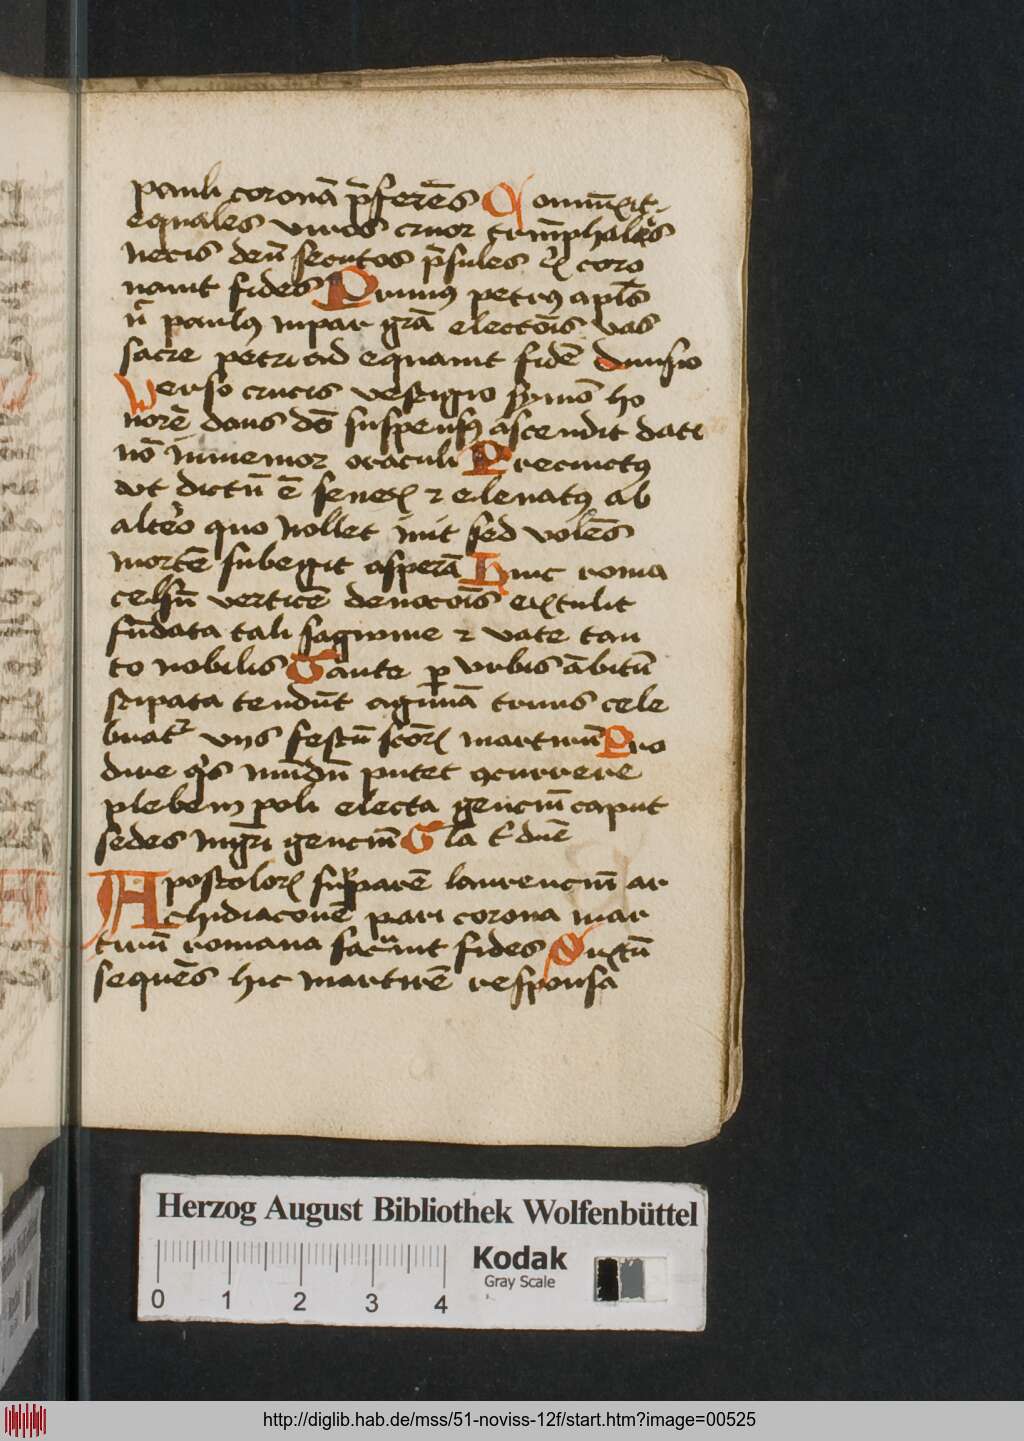 pauli coronā p̄ferēs Coniūxit
equales viros cruor triūphalēs
necis deū secutos p̄sules xp̄i coro
nauit fides Primus petrus apl̄s
n̄ paulus inpar grā electōis vas
sacre petri ad equauit fidē diuisio
Verso crucis vestigio symō ho
norē dans dō suspensus ascendit dati
nō inmemor oraculi Precinctus
vt dictū ē senex ⁊ eleuatus ab
altero quo nollet iuit sed volēs
mortē subegit asperā Hinc roma
celsū verticē deuocōis extulit
fūdata tali sagwine ⁊ vate tan
to nobilis Tante p vrbis ābitū
stipata tendūt agminā trinis cele
brat᷑ vijs festū scōꝝ martirum Pro
dire q̄s mūdū putet ꝯcurrere
plebem poli electa genciū caput
sedes mgr̄i genciū Gla t᷑ dnē
Apostoloꝝ supparē laurenciū ar
chidiaconē pari corona mar
tirū romana sacrauit fides Sixtū
sequēs hic martirē responsa
Herzog August Bibliothek Wolfenbüttel
Kodak
Gray Scale
0 1 2 3 4
http://diglib.hab.de/mss/51-noviss-12f/start.htm?image=00525